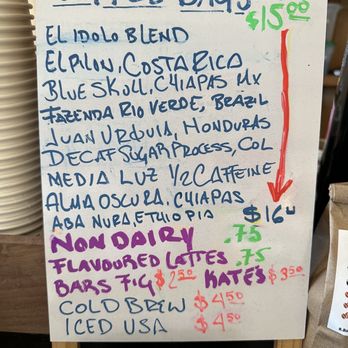 $15.00
EL IDOLO BLEND
EL PILON, COSTA RICA
BLUE SKULL, CHIAPAS MX
FAZENDA RIO VERDE, BRAZIL
JUAN URQUIA, HONDURAS
DECAF SUGAR PROCESS, COL
MEDIA LUZ 1/2 CAFFEINE
ALMA OSCURA, CHIAPAS
ABA NURA, ETHIOPIA $16
NON DAIRY .75
FLAVOURED LATTES .75
BARS FIG $2.50 KATE'S $3.50
COLD BREW $4.50
ICED USA $4.50